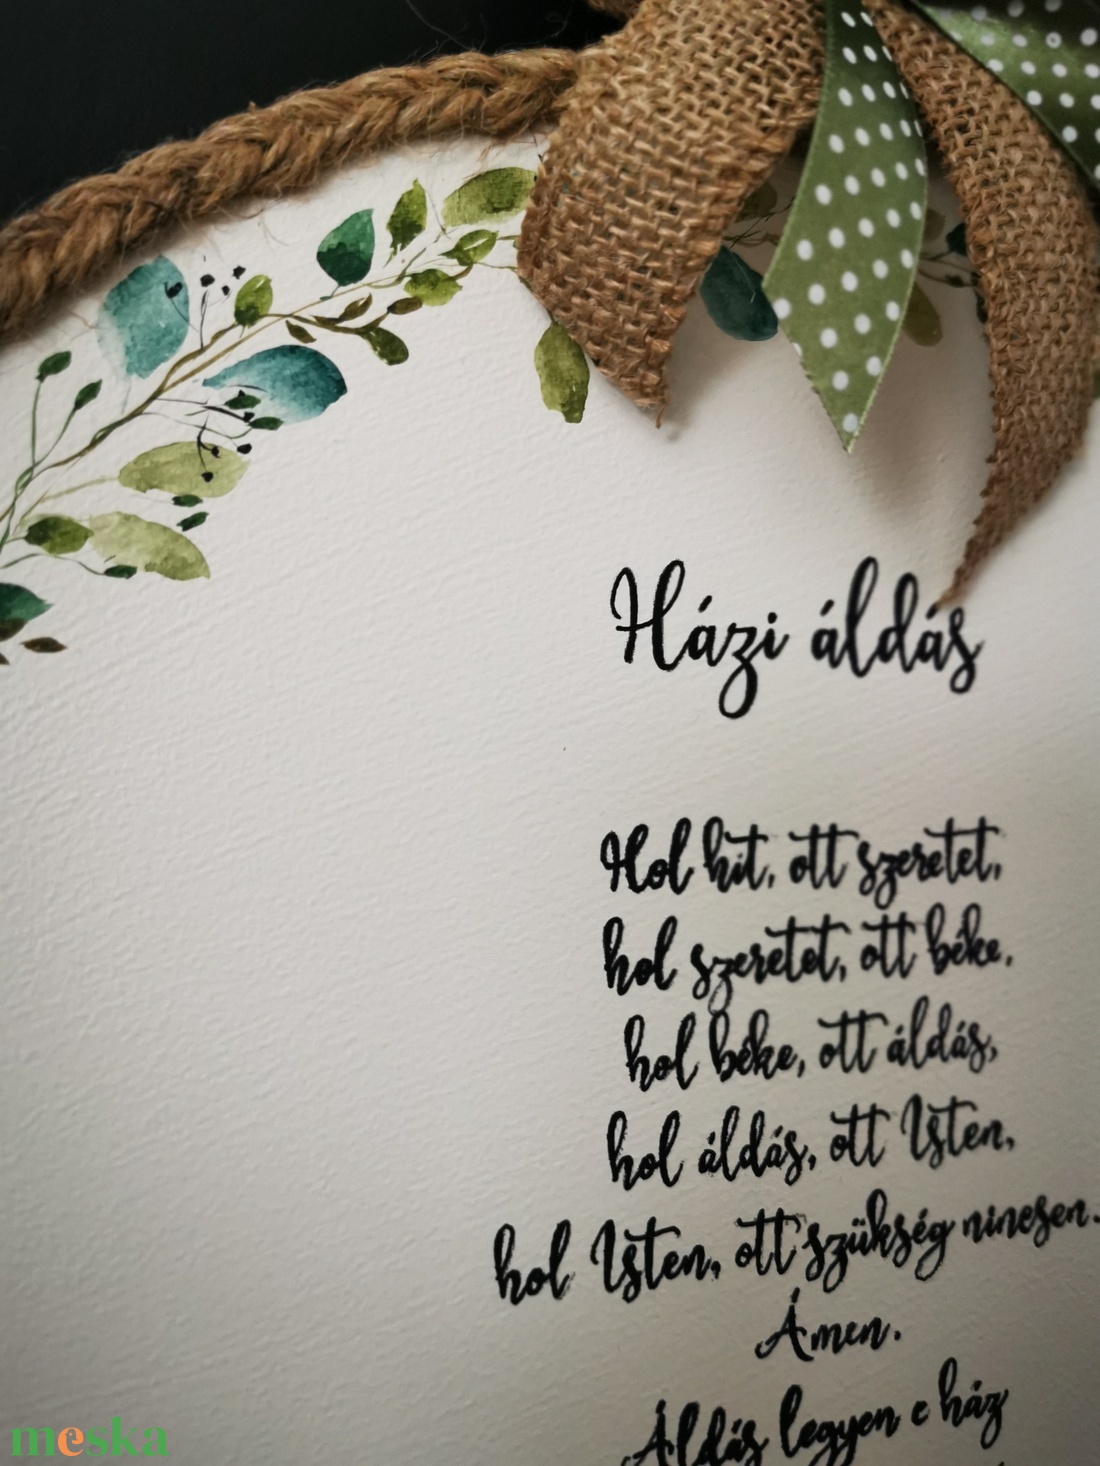 Házi áldás
Hol hit, ott szeretet,
hol szeretet, ott béke,
hol béke, ott áldás,
hol áldás, ott Isten,
hol Isten, ott szükség nincsen.
Ámen.
Áldás legyen e ház
meska